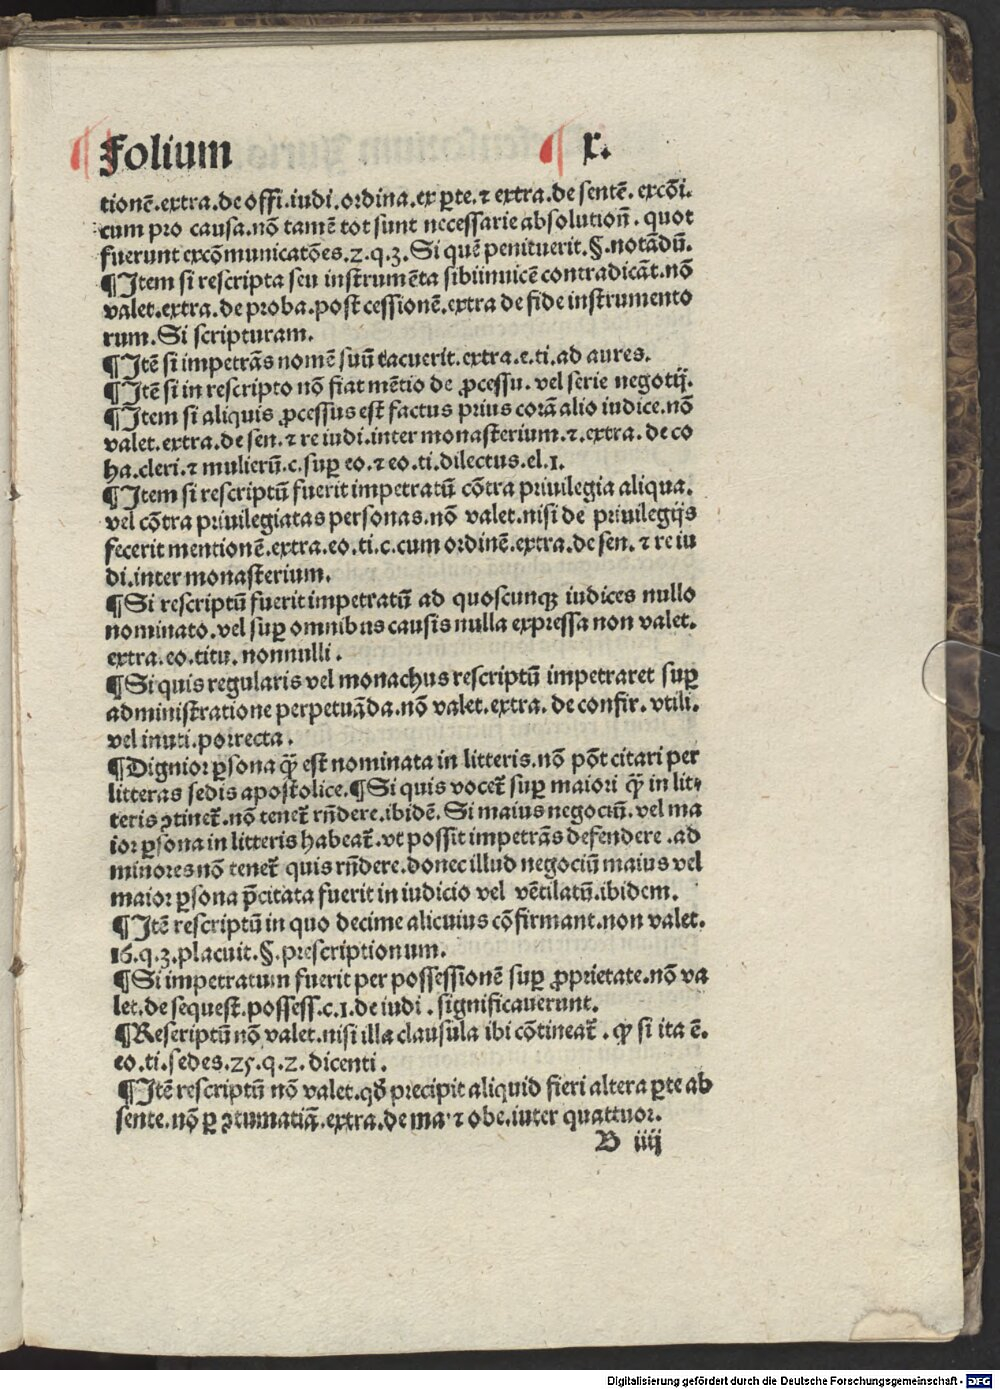 ¶ Folium ¶ x.
tionē.extra.de offi.iudi.ordina.ex ꝑte.⁊ extra.de sentē. excōi.
cum pro causa.nō tamē tot sunt necessarie absolutioñ. quot
fuerunt excōmunicatōes.2.q.3.Si quē penituerit.§.notādū.
¶Item si rescripta seu instrumēta sibiinuicē contradicāt.nō
valet.extra.de proba.post cessionē.extra de fide instrumento
rum.Si scripturam.
¶Itē si impetrās nomē suū tacuerit.extra.e.ti.ad aures.
¶Itē si in rescripto nō fiat mētio de ꝓcessu. vel serie negotij.
¶Item si aliquis ꝓcessus est factus prius corā alio iudice.nō
valet.extra.de sen.⁊ re iudi.inter monasterium.⁊.extra. de co
ha.cleri.⁊ mulierū.c.suꝑ eo.⁊ eo.ti.dilectus.el.1.
¶Item si rescriptū fuerit impetratū cōtra priuilegia aliqua.
vel cōtra priuilegiatas personas.nō valet.nisi de priuilegijs
fecerit mentionē.extra.eo.ti.c.cum ordinē.extra.de sen. ⁊ re iu
di.inter monasterium.
¶Si rescriptū fuerit impetratū ad quoscunqꝫ iudices nullo
nominato.vel suꝑ omnibus causis nulla expressa non valet.
extra.eo.titu. nonnulli.
¶Si quis regularis vel monachus rescriptū impetraret suꝑ
administratione perpetuāda.nō valet.extra. de confir. vtili.
vel inuti.porrecta.
¶Dignior ꝑsona q̄ꝫ est nominata in litteris.nō pōt citari per
litteras sedis apostolice.¶Si quis vocet᷑ suꝑ maiori q̄ꝫ in lit-
teris ꝯtinet᷑.nō tenet᷑ rñdere.ibidē. Si maius negociū. vel ma
ior ꝑsona in litteris habeat᷑.vt possit impetrās defendere .ad
minores nō tenet᷑ quis rñdere.donec illud negociū maius vel
maior ꝑsona p̄citata fuerit in iudicio vel vētilatū.ibidem.
¶Itē rescriptū in quo decime alicuius cōfirmant.non valet.
16.q.3.placuit.§.prescriptionum.
¶Si impetratum fuerit per possessionē suꝑ ꝓprietate.nō va
let.de sequest.possess.c.1.de iudi . significauerunt.
¶Rescriptū nō valet.nisi illa clausula ibi cōtineat᷑ . ꝙ si ita ē.
eo.ti.sedes.25.q.2. dicenti.
¶Itē rescriptū nō valet.qđ precipit aliquid fieri altera ꝑte ab
sente.nō ꝑ ꝯtumatiā.extra.de ma' ⁊ obe.inter quattuor.
B iiij
Digitalisierung gefördert durch die Deutsche Forschungsgemeinschaft - DFG